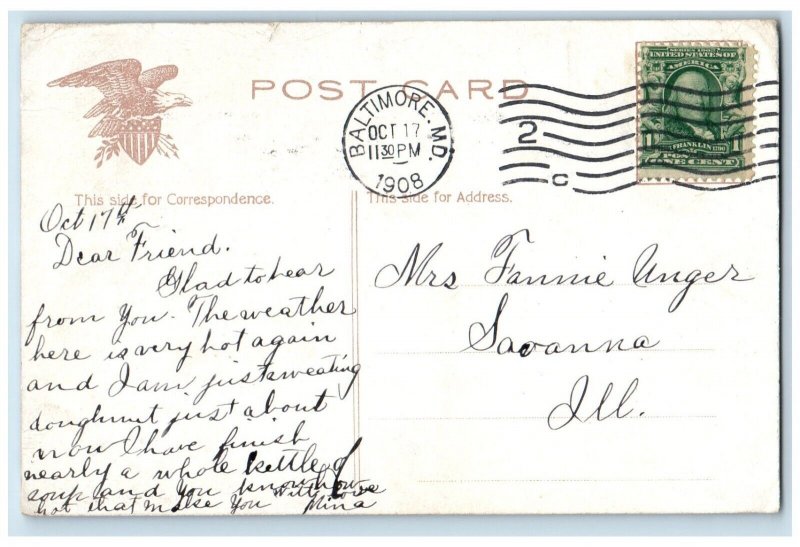 POST CARD
BALTIMORE, MD.
OCT 17
11 30 PM
1908
2
C
SERIES 1902
UNITED STATES OF
AMERICA
1 FRANKLIN 1790 1
ONE CENT
This side for Correspondence.
This side for Address.
Oct 17th
Dear Friend.
Glad to hear
from You. The weather
here is very hot again
and I am just sweating
doughnut just about
now I have finish
nearly a whole kettle of
soup and you know how
hot that makes You with love
Mina
Mrs Fannie Unger
Savanna
Ill.